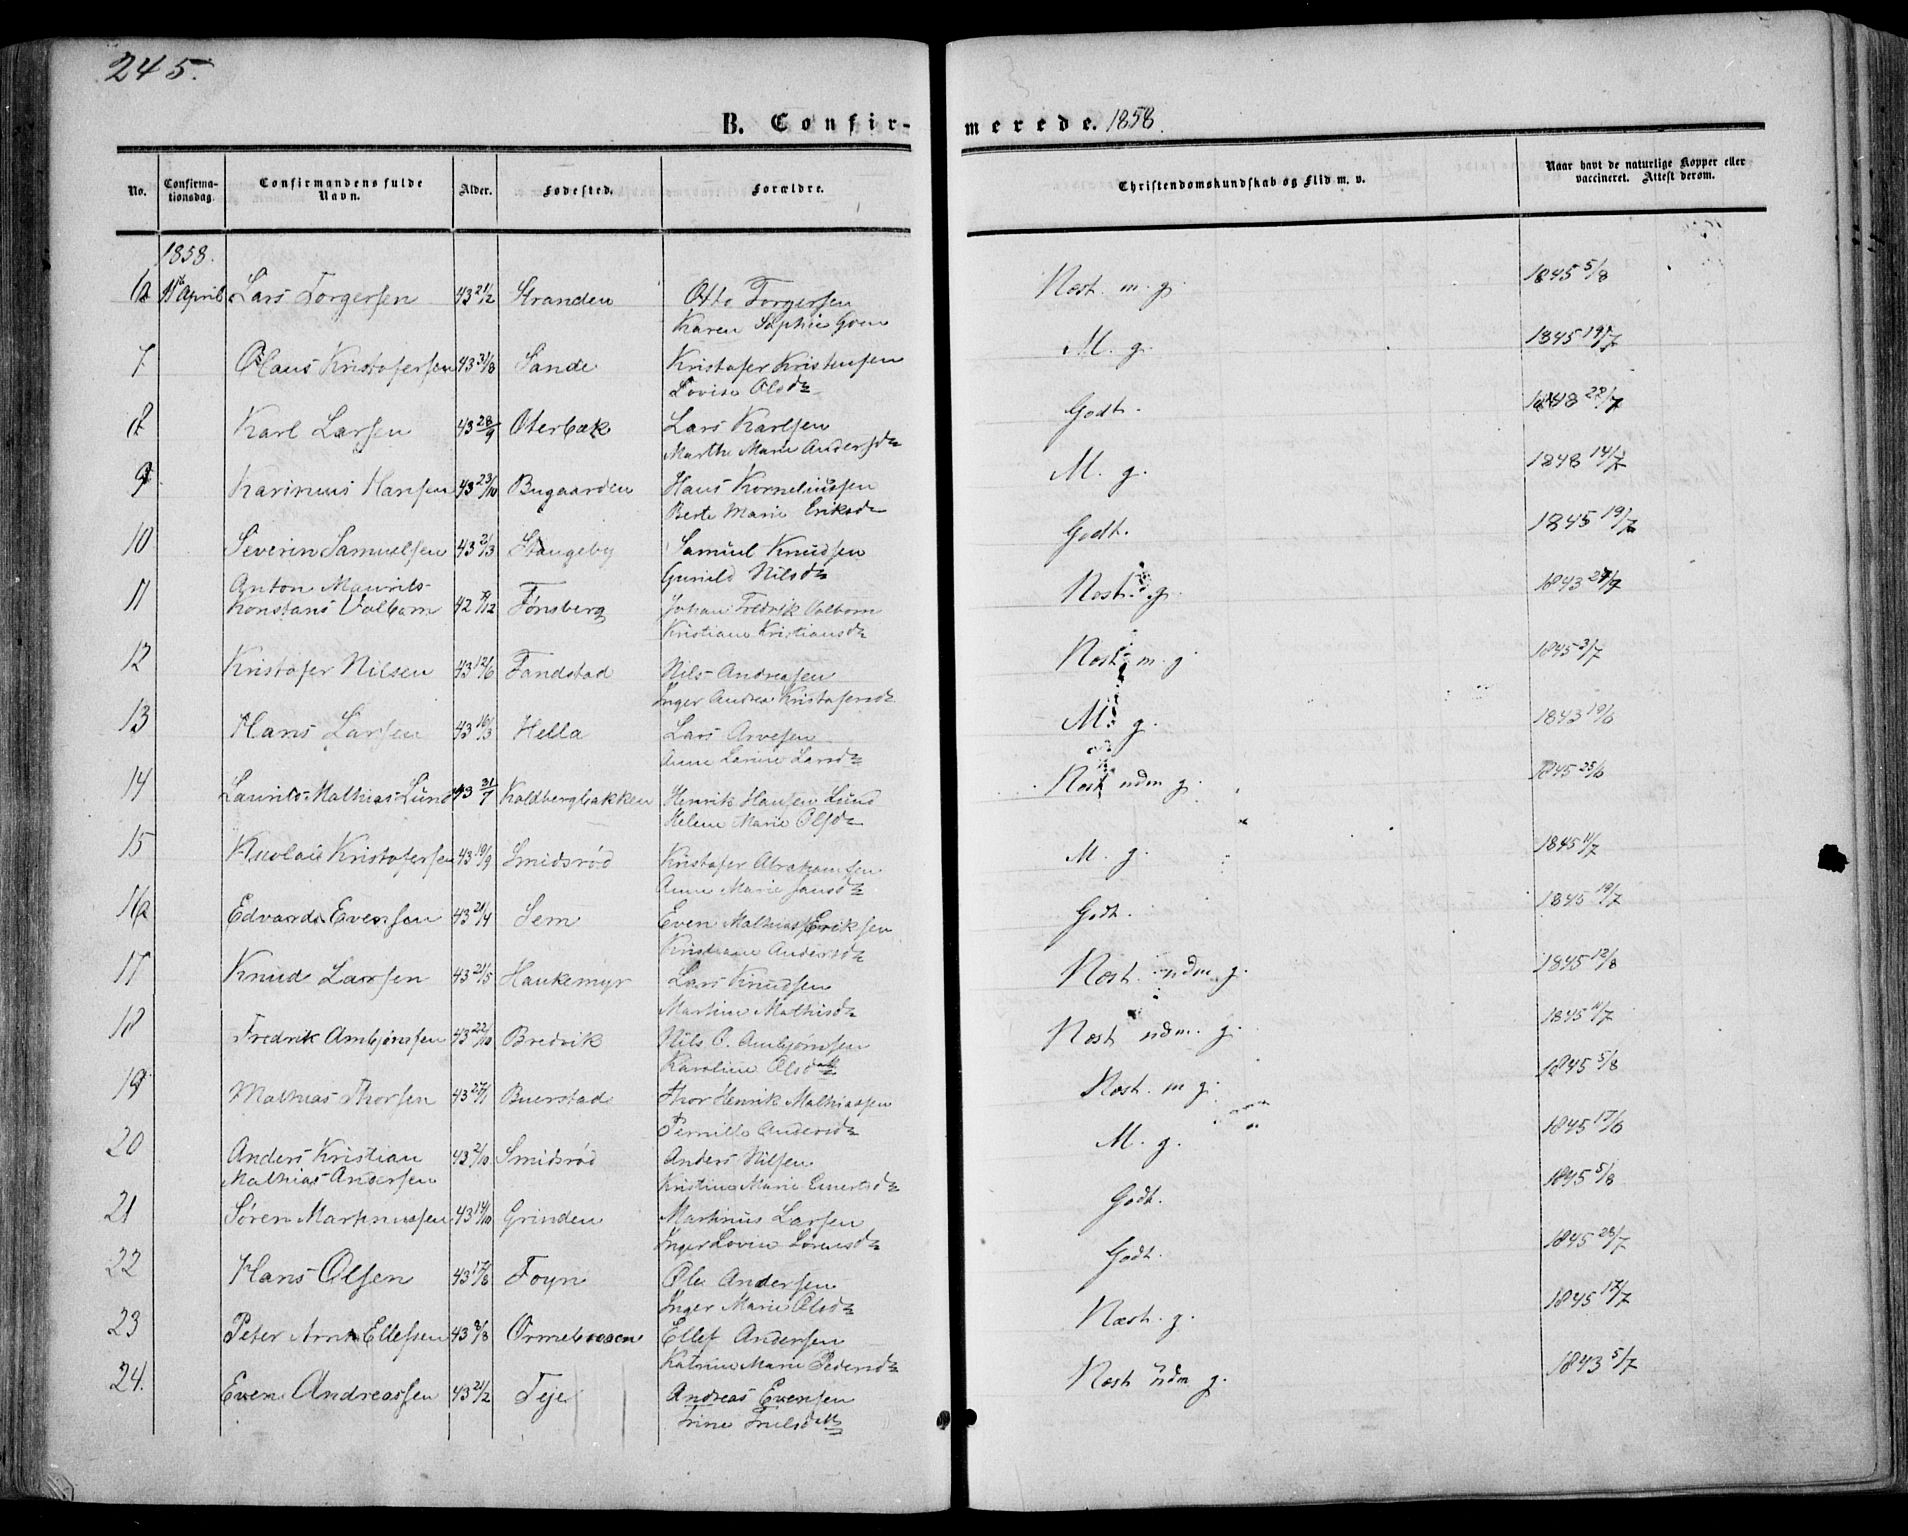 245.
B. Confirmerede. 1858.
No. Confirmationsdag. Confirmandens fulde Navn. Alder. Fødested. Forældre. Christendomskundskab og Flid m. v. Naar havt de naturlige Kopper eller vaccineret. Attest derom.
1858.
6 11te April Lars Torgersen 43 21/2 Stranden Otto Torgersen Næst. m. g. 1845 5/8
Karen Sophie
7 Olaus Kristofersen 43 31/8 Sande Kristofer Kristensen M. g. 1845 19/7
Lovise Olsd.
8 Karl Larsen 43 28/9 Oterbæk Lars Karlsen Godt. 1848 22/7
Marthe Marie Andersd.
9 Karinius Hansen 43 23/10 Bugaarden Hans Korneliussen M. g. 1848 14/7
Berte Marie Eriksd.
10 Severin Samuelsen 43 2/3 Stangeby Samuel Knudsen Godt. 1845 19/7
Gunild Nilsd.
11 Anton Maurits
Konstans Valborn 42 /12 Tønsberg Johan Fredrik Valborn Næst. g. 1843 27/9
Kristiane Kristiansd.
12 Kristofer Nilsen 43 12/6 Fandstad Nils Andreasen Næst. m. g. 1845 3/7
Inger Andrea Kristofersd.
13 Hans Larsen 43 16/3 Hella Lars Arvesen M. g. 1843 19/6
Anne Larine Larsd.
14 Laurits Mathias Lund 43 31/7 Koldbergbakken Henrik Hansen Lund Næst udm g. 1845 25/6
Helene Marie Olsd.
15 Nicolai Kristofersen 43 19/9 Smidsrød Kristofer Abrahamsen M. g. 1845 11/7
Anne Marie Jansd.
16 Edvard Evensen 43 21/4 Sem Even Mathias Eriksen Godt. 1845 19/7
Kristiane Andersd.
17 Knud Larsen 43 21/5 Haukemyr Lars Knudsen Næst. udm. g. 1845 12/8
Martine Mathisd.
18 Fredrik Ambjønsen 43 22/10 Bredvik Nils O. Ambjørnsen Næst udm. g. 1845 11/7
Karoline Olsdatt
19 Mathias Thorsen 43 27/1 Buerstad Thor Henrik Mathiassen Næst. m g. 1845 5/8
Pernille Andersd.
20 Anders Kristian 43 2/10 Smidsrød Anders Nilsen M. g. 1845 17/6
Mathias Andersen Kristine Marie Enertsd.
21 Søren Martinussen 43 14/10 Grinden Martinus Larsen Godt. 1845 5/8
Inger Lovise Sørensd.
22 Hans Olsen 43 17/8 Foyn Ole Andersen Godt. 1845 23/7
Inger Marie Olsd.
23 Peter Arnt Ellefsen 43 8/8 Ormelveien Ellef Andersen Næst. g. 1845 17/7
Katrine Marie Pedersd.
24. Even Andreassen 43 21/2 Teje Andreas Evensen Næst udm g. 1843 5/7
Trine Trulsdatt